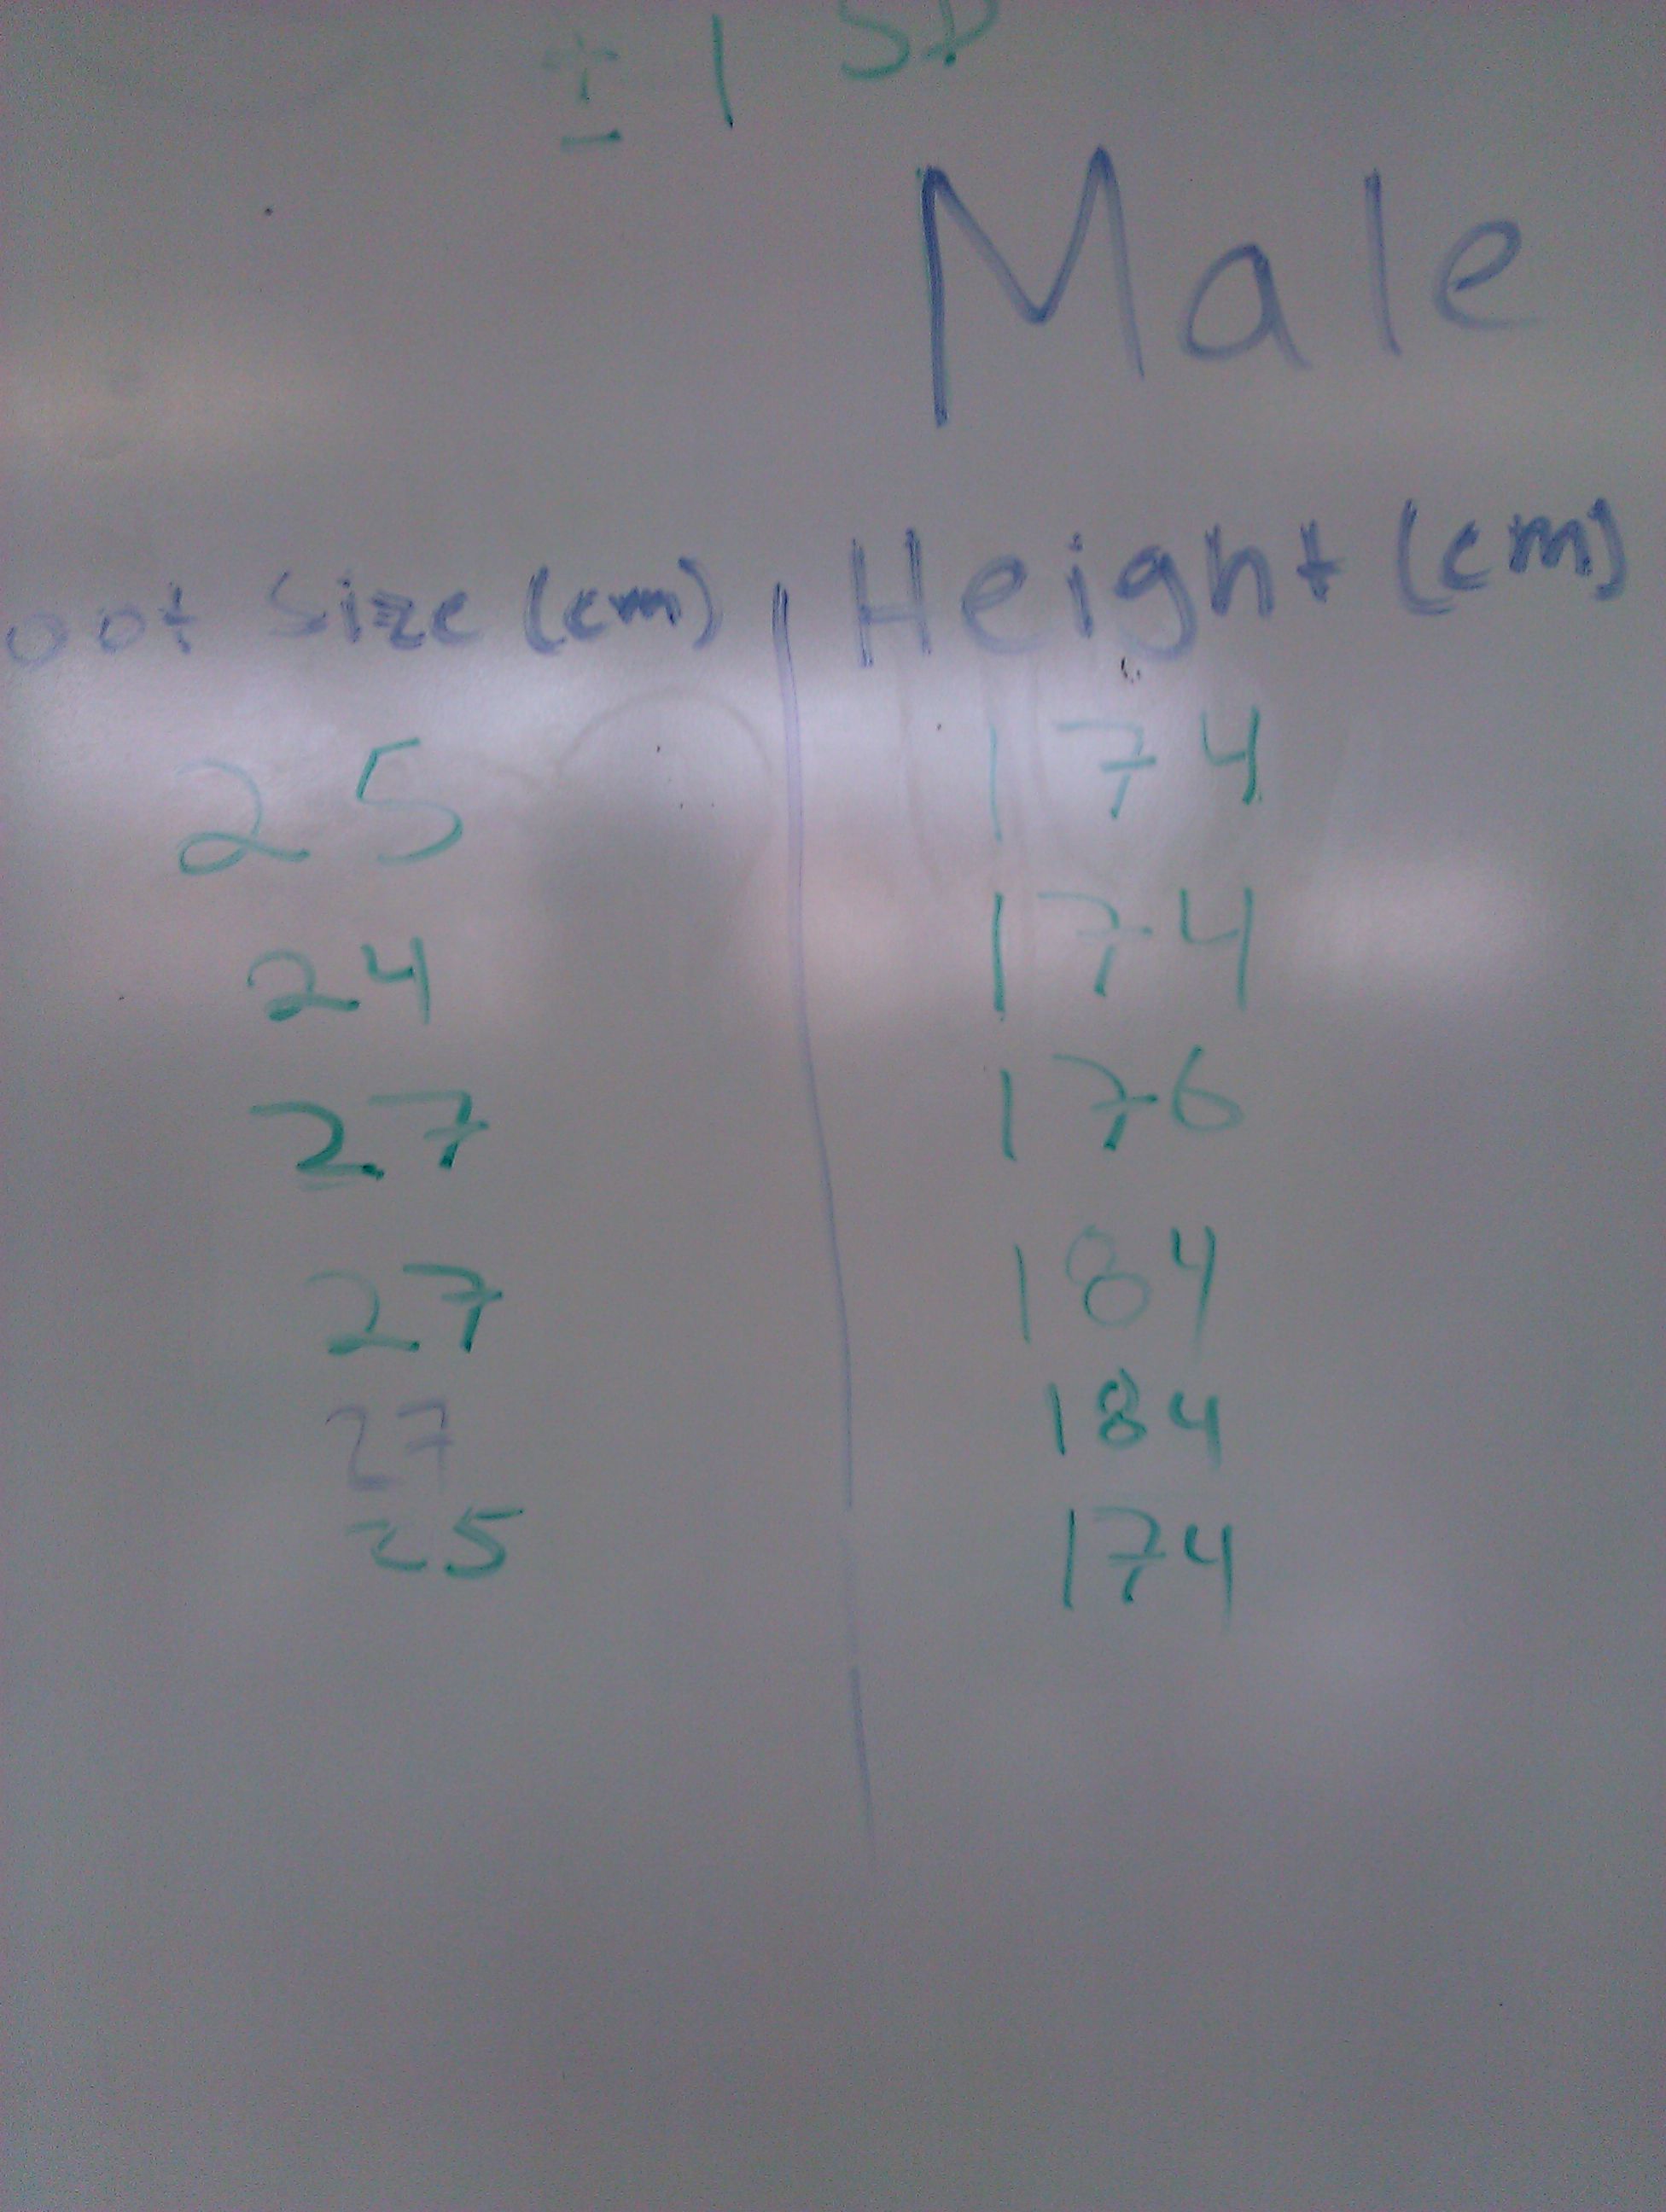 ± 1 SD
Male
oot Size (cm) Height (cm)
25 174
24 174
27 176
27 184
27 184
25 174